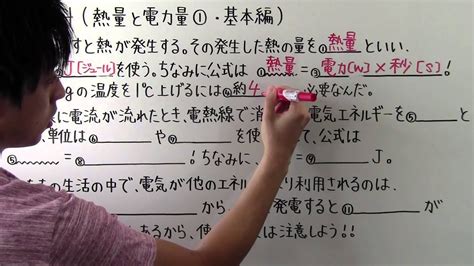 (熱量と電力量①・基本編)
すと熱が発生する。その発生した熱の量を①熱量といい、
J[ジュール]を使う。ちなみに公式は ③熱量=③電力[W]×秒[S]!
gの温度を1℃上げるには④約4 必要なんだ。
に電流が流れたとき、電熱線で消 電気エネルギーを⑤ と
、単位は⑥ や⑦ を使って、公式は
= ! ちなみに、 = J。
の生活の中で、電気が他のエネル り利用されるのは、
から 発電すると⑪ が
あるから、使 は注意しよう!!